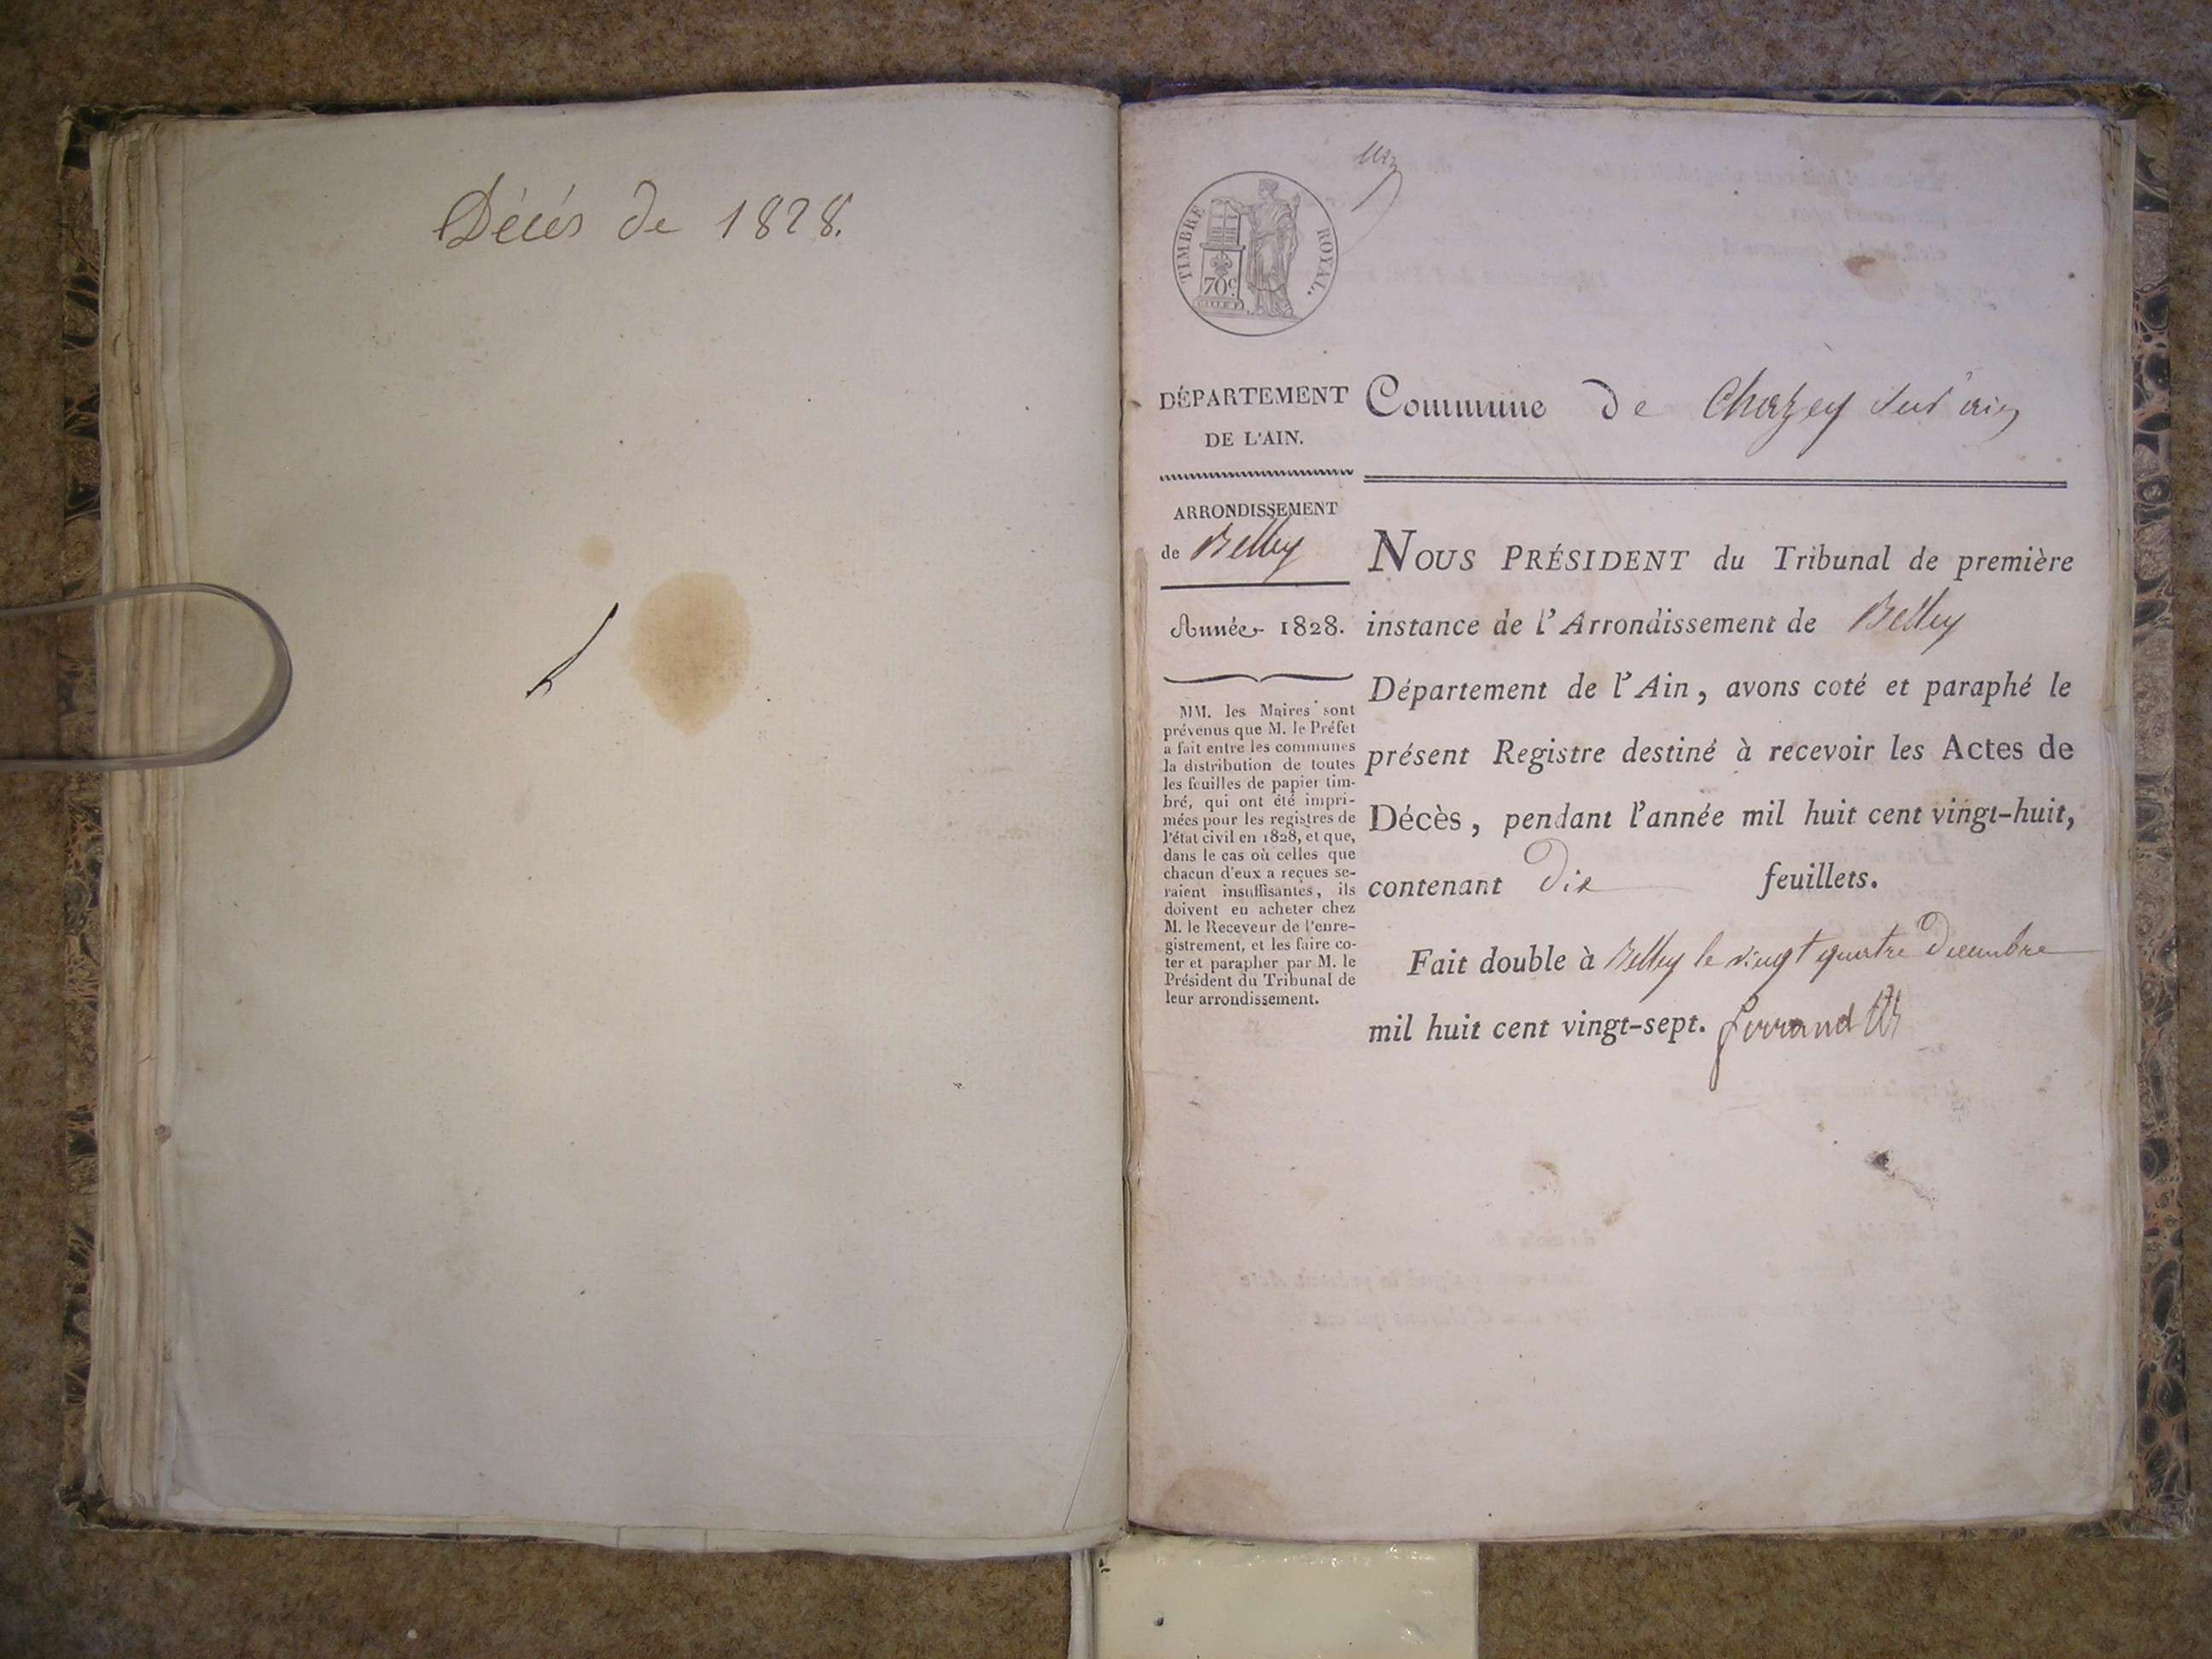 Décés de 1828.
TIMBRE ROYAL.
70c.
DÉPARTEMENT
DE L'AIN.
ARRONDISSEMENT
de Belley
Année 1828.
MM. les Maires sont
prévenus que M. le Préfet
a fait entre les communes
la distribution de toutes
les feuilles de papier tim-
bré, qui ont été impri-
mées pour les registres de
l'état civil en 1828, et que,
dans le cas où celles que
chacun d'eux a reçues se-
raient insuffisantes, ils
doivent en acheter chez
M. le Receveur de l'enre-
gistrement, et les faire co-
ter et parapher par M. le
Président du Tribunal de
leur arrondissement.
Commune de Chazey sur ain
NOUS PRÉSIDENT du Tribunal de première
instance de l'Arrondissement de Belley
Département de l'Ain, avons coté et paraphé le
présent Registre destiné à recevoir les Actes de
Décès, pendant l'année mil huit cent vingt-huit,
contenant Dix feuillets.
Fait double à Belley le vingt quatre Decembre
mil huit cent vingt-sept. ferrand